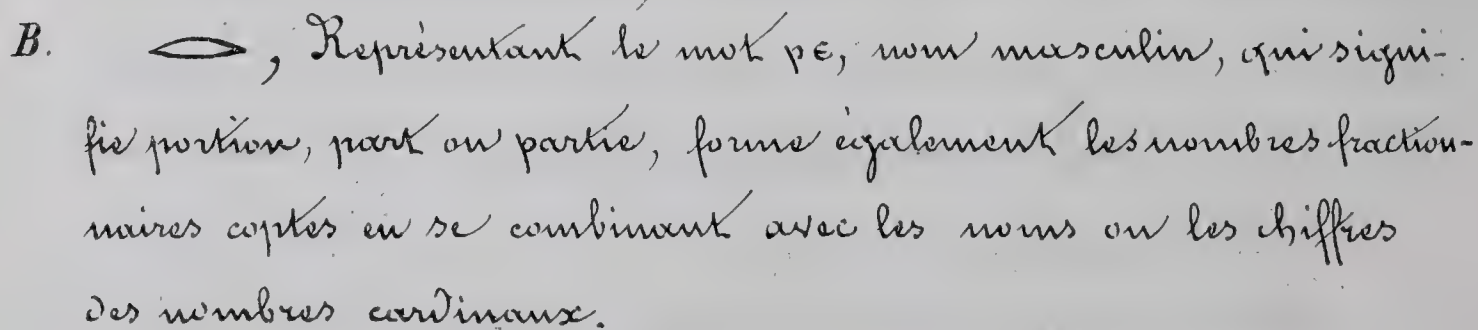 B. 𓂋, Représentant le mot ⲣⲉ, nom masculin, qui signi-
fie portion, part ou partie, forme également les nombres fraction-
naires coptes en se combinant avec les noms ou les chiffres
des nombres cardinaux.